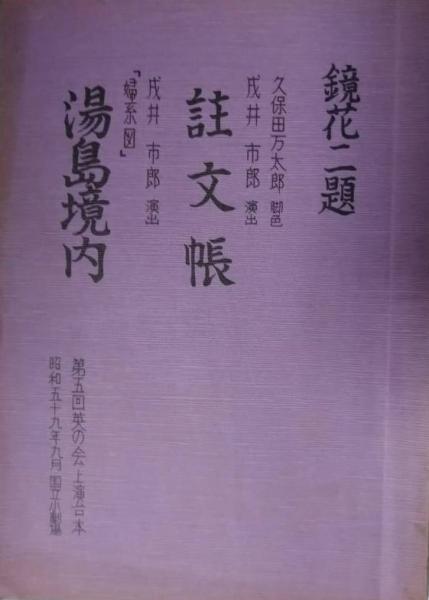 鏡花二題
久保田万太郎 脚色
戌井市郎 演出
註文帳
戌井市郎 演出
「婦系図」
湯島境内
第五回英の会上演台本
昭和五十九年九月 国立小劇場